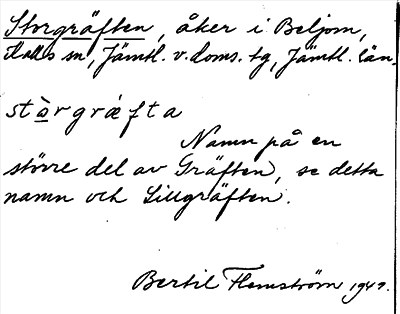 Storgräften, åker i Beljom,
Halls sn, Jämtl. v. doms. tg, Jämtl. län.
stò̱rgráfta
Namn på en
större del av Gräften, se detta
namn och Lillgräften.
Bertil Flemström 1947.